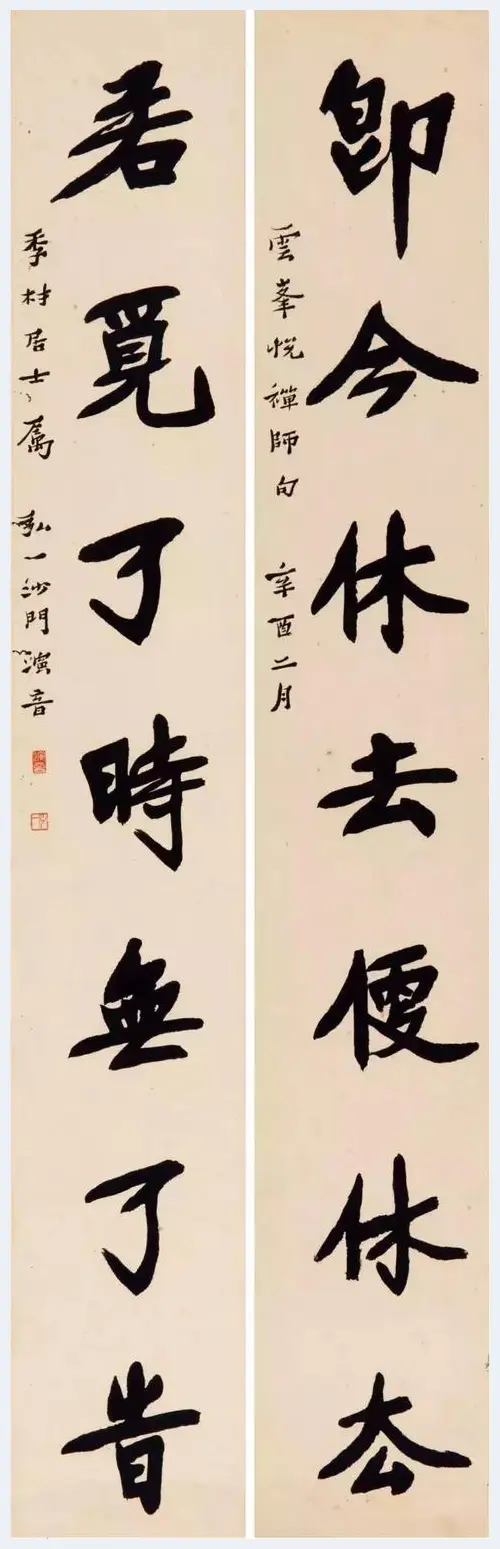 即今休去便休去
雲峯悅禪師句 辛酉二月
若覓了時無了時
季材居士屬 弘一沙門演音